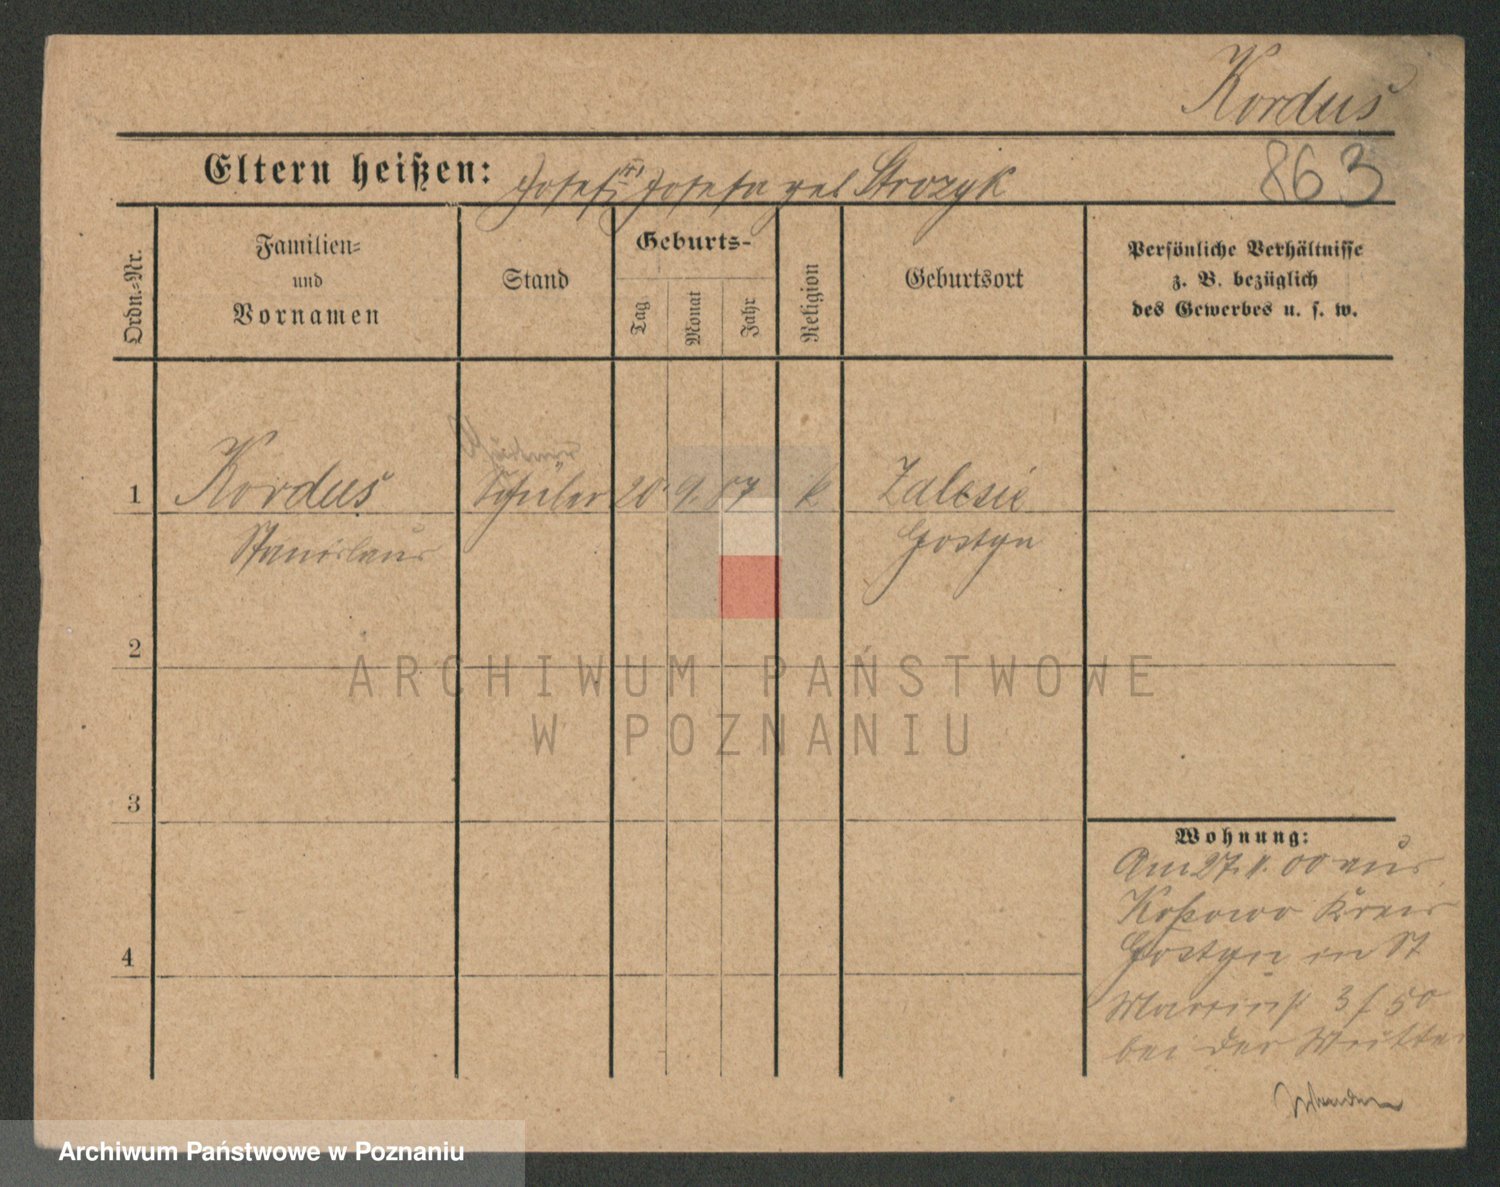 Kordus
Eltern heißen: Josef u. Josefa geb Strozyk
863
Ordn.-Nr.
Familien-
und
Vornamen
Stand
Geburts-
Tag
Monat
Jahr
Religion
Geburtsort
Persönliche Verhältnisse
z. B. bezüglich
des Gewerbes u. s. w.
1 Kordus Schüler 20. 9. 07 k Zalesie
Stanislaus Gostyn
2
3
4
Wohnung:
Am 27. aus
Kreis
Gostyn in St
Martinst 3 / 50
bei der Mutter
ARCHIWUM PAŃSTWOWE
W POZNANIU
Archiwum Państwowe w Poznaniu